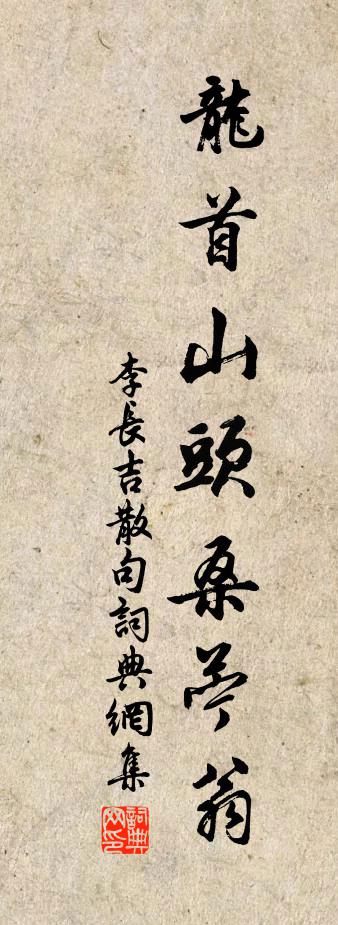 龍首山頭桑苧翁
李長吉散句詞典網集
詞典网印